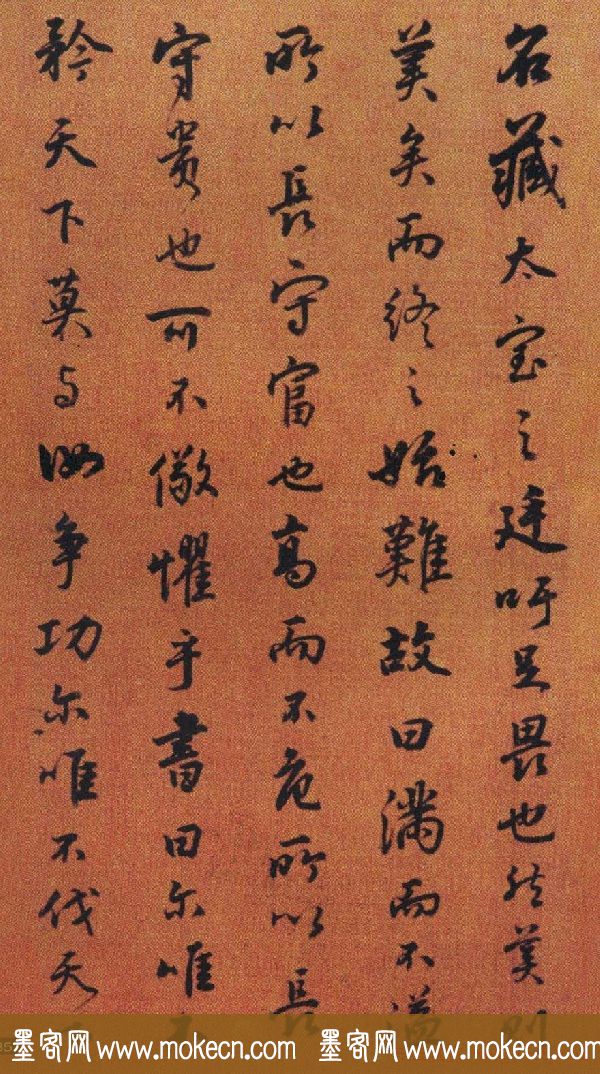 名藏太室之廷吁足畏也然美則
美矣而終之始難故曰滿而不溢
所以長守富也高而不危所以長
守貴也可不儆懼乎書曰尔唯
矜天下莫与汝争功尔唯不伐天
墨客网 www.mokecn.com 墨客网 www.mokecn.com